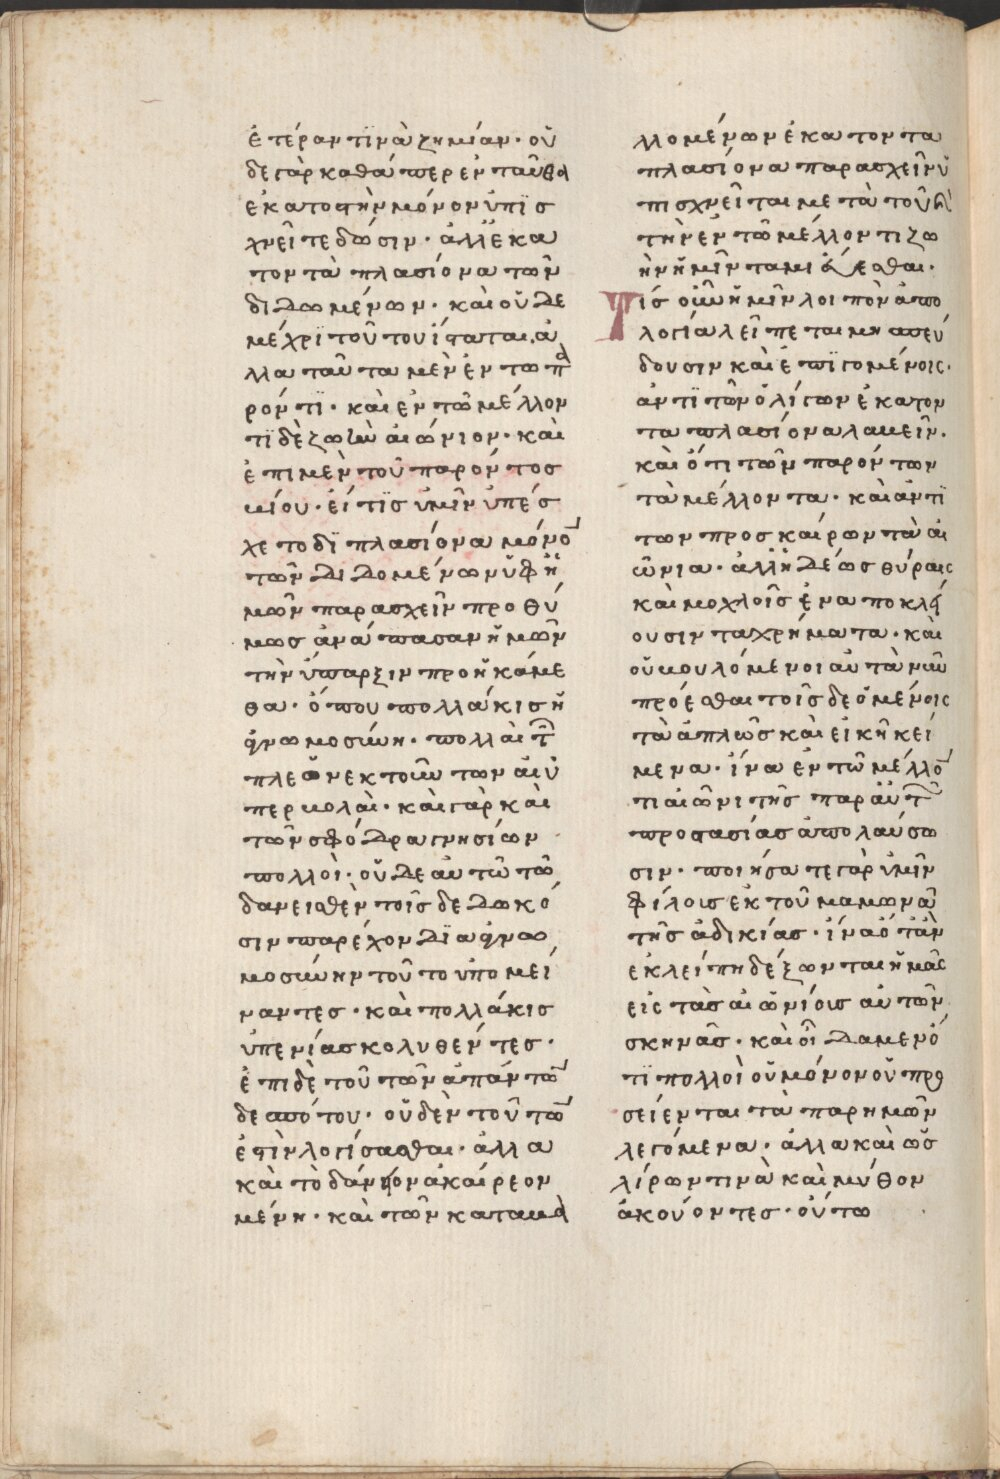 ἑτέραν τϊνὰ ζημίαν· οὐ
δε γὰρ καθάπερ ἐνταῦθα
ἑκατοστὴν μόνον ὑπϊσ
χνεῖτε δώσιν· ἀλλ ἑκα
τονταπλασίονα τῶν
διδωμένων· καὶ οὐδὲ
μέχρϊ τούτου ἵσταται. ἀ
λλα ταῦτα μὲν ἐν τω πα
ρόντϊ· καὶ ἐν τῶ μέλλον
τϊ δὲ ζωὴν αἰώνιον· καὶ
ἐπι μὲν τοῦ παρόντοσ
βίου· εἴ τϊσ ὑμῖν ὑπέσ
χετο δϊπλασίονα μόνον
τῶν διδομένων ὑφ ἡ
μῶν παρασχεῖν προθύ
μωσ ἀν ἁπασαν ἡμῶν
τὴν ὕπαρξιν προηκάμε
θα· ὅπου πολλάκισ ἡ
ἀγνωμοσύνη· πολλαὶ τῶν
πλεονεκτούντων αἱ ὑ
περβολαὶ· καὶ γὰρ καὶ
τῶν σφόδρα γνησίων
πολλοὶ· οὐδὲ αυτῶ τῶ
δανεισθὲν τοῖσ δεδωκό
σιν παρέχον δϊ ἀγνω
μοσύνην τοῦτο ὑπομεί
ναντεσ· καὶ πολλάκισ
ὑπενίασ κολυθέντεσ·
ἐπι δὲ τοῦ τῶν ἁπάντων
δεσπότου· οὐδὲν τούτων
ἐστὶν λογίσασθαι· ἀλλα
καὶ τὸ δάνειον ἀκαίρεον
μένη· καὶ τῶν καταβα
λλομένων ἑκατοντα
πλασίονα παρασχεῖν ὑ
πισχνεῖται μετὰ τοῦ καὶ
τὴν ἐν τῶ μέλλοντι ζω
ὴν ἡμῖν ταμιεύεσθαι·
Τίσ οὖν ἡμῖν λοιπὸν ἀπο
λογία λεῖπεται μη σπεύ
δουσιν καὶ ἐπϊγομένοις·
ἀντὶ τῶν ὀλίγων ἑκατον
ταπλασίονα λαβεῖν·
καὶ ὅτι τῶν παρόντων
τὰ μέλλοντα· καὶ ἀντϊ
των προσκαίρων τὰ αἰ
ώνια· ἀλλ ἡδέωσ θύραις
καὶ μοχλοῖσ ἐναποκλεί
ουσιν τα χρήματα· καὶ
οὐ βουλόμενοι αὐτὰ νῦν
πρόεσθαι τοῖσ δεομένοις
τὰ ἁπλῶσ καὶ εἰκῆ κεί
μενα· ἵνα ἐν τῶ μέλλον
τι αἰῶνι τῆσ παρ αὐτῶν
προστασίασ ἀπολαύσω
σιν· ποιήσατε γὰρ ὑμῖν
φίλοισ ἐκ τοῦ μαμωνᾶ
τῆσ ἀδικίασ· ἵνα ὁτὰν
ἐκλείπη δέξωνται ἡμᾶς
εἰς τὰσ αἰωνίοισ αὐτῶν
σκηνὰσ· καὶ οἶδα μὲν ὅ
τϊ πολλοὶ οὐ μόνον οὐ προ
σείενται τὰ παρ ημῶν
λεγόμενα· ἀλλα καὶ ὡσ
λίρων τινὰ καὶ μύθον
ἀκούοντεσ· οὕτω